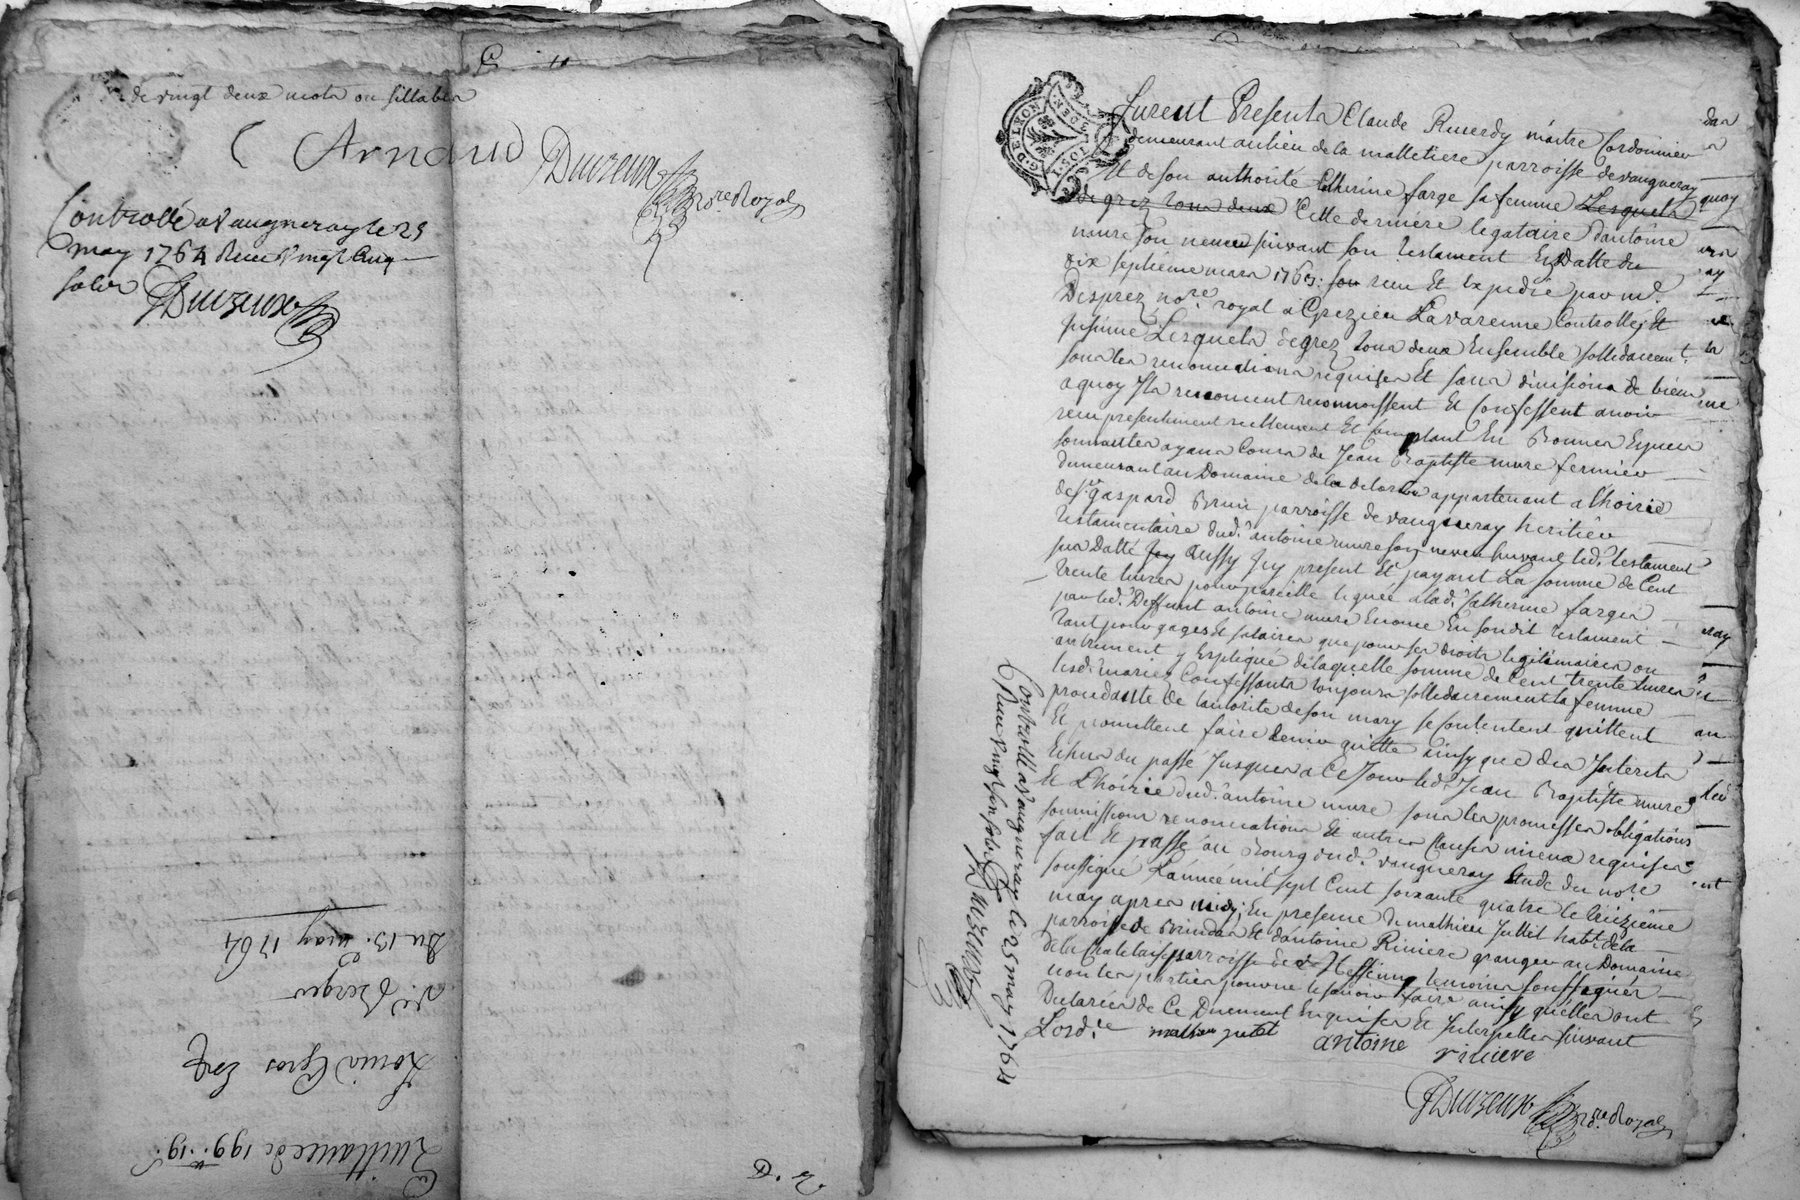 de vingt deux mots ou sillabes
Arnaud
Duvzeux
n.re Royal
Controllé a Vaugneray le 25
may 1764 Receu Vingt Cinq
sols
Duvzeux
Du 13. may 1764
Louis Gros
Quittance de 199.tt 19.s
G. DE LYON
Furent Presents Claude Maitre Cordonnier
demeurant au lieu de la malletiere parroisse de vaugneray
Et de son authorité Catherine farge sa femme Lesquels
de grez tous deux Cette derniere legataire d'antoine
mure son neveu suivant son testament En Datte du
dix septieme mars 1763: son receu Et Expedié par m.e
Desprez no.re royal a Grezieu Lavarenne Controllé Et
Insinué Lesquels de grez tous deux Ensemble sollidairem.t
sous les renonciations requises Et sans division de biens
a quoy ils renoncent reconnoissent Et Confessent avoir
receu presentement reellement Et Comptant En Bonnes Especes
sonnantes ayans Cours de Jean Baptiste mure fermier
demeurant au Domaine de la appartenant a l'hoirie
de s.r gaspard Brun parroisse de vaugneray heritier
testamentaire dud. antoine mure son neveu suivant led. testament
sus Datté Aussy Icy present Et payant La somme de Cent
trente livres pour pareille leguée a lad. Catherine farges
par led. Deffunt antoine mure En son dit testament
tant pour gages Et salaires que pour ses droits legitimaires ou
autrement y Expliqué de laquelle somme de Cent trente livres
lesd. mariez Confessants toujours sollidairement la femme
procedante de l'autorité de son mary se Contentent quittent
Et promettent faire tenir quitte ainsy que des Interets
Echus du passé Jusques a Ce Jour led. Jean Baptiste mure
Et L'hoirie dud. antoine mure sous les promesses obligations
soumissions renonciations Et autres Clauses mieux requises
fait Et passé au Bourg dud. vaugneray Etude du no.re
soussigné L'année mil sept Cent soixante quatre le treizieme
may apres midy; En presence de mathieu Juttet hab.t de la
parroisse de Brindas Et d'antoine Riviere granger au Domaine
de la Chatelaise parroisse de temoins soussignés
non les parties pour ne le scavoir faire ainsy qu'elles ont
Declarées de Ce Duement Enquises Et Interpellés suivant
L'ord.ce mathieu jutet antoine riviere
Duvzeux n.re Royal
Controllé a Vaugneray le 25 may 1764
Receu Vingt six sols
Duvzeux